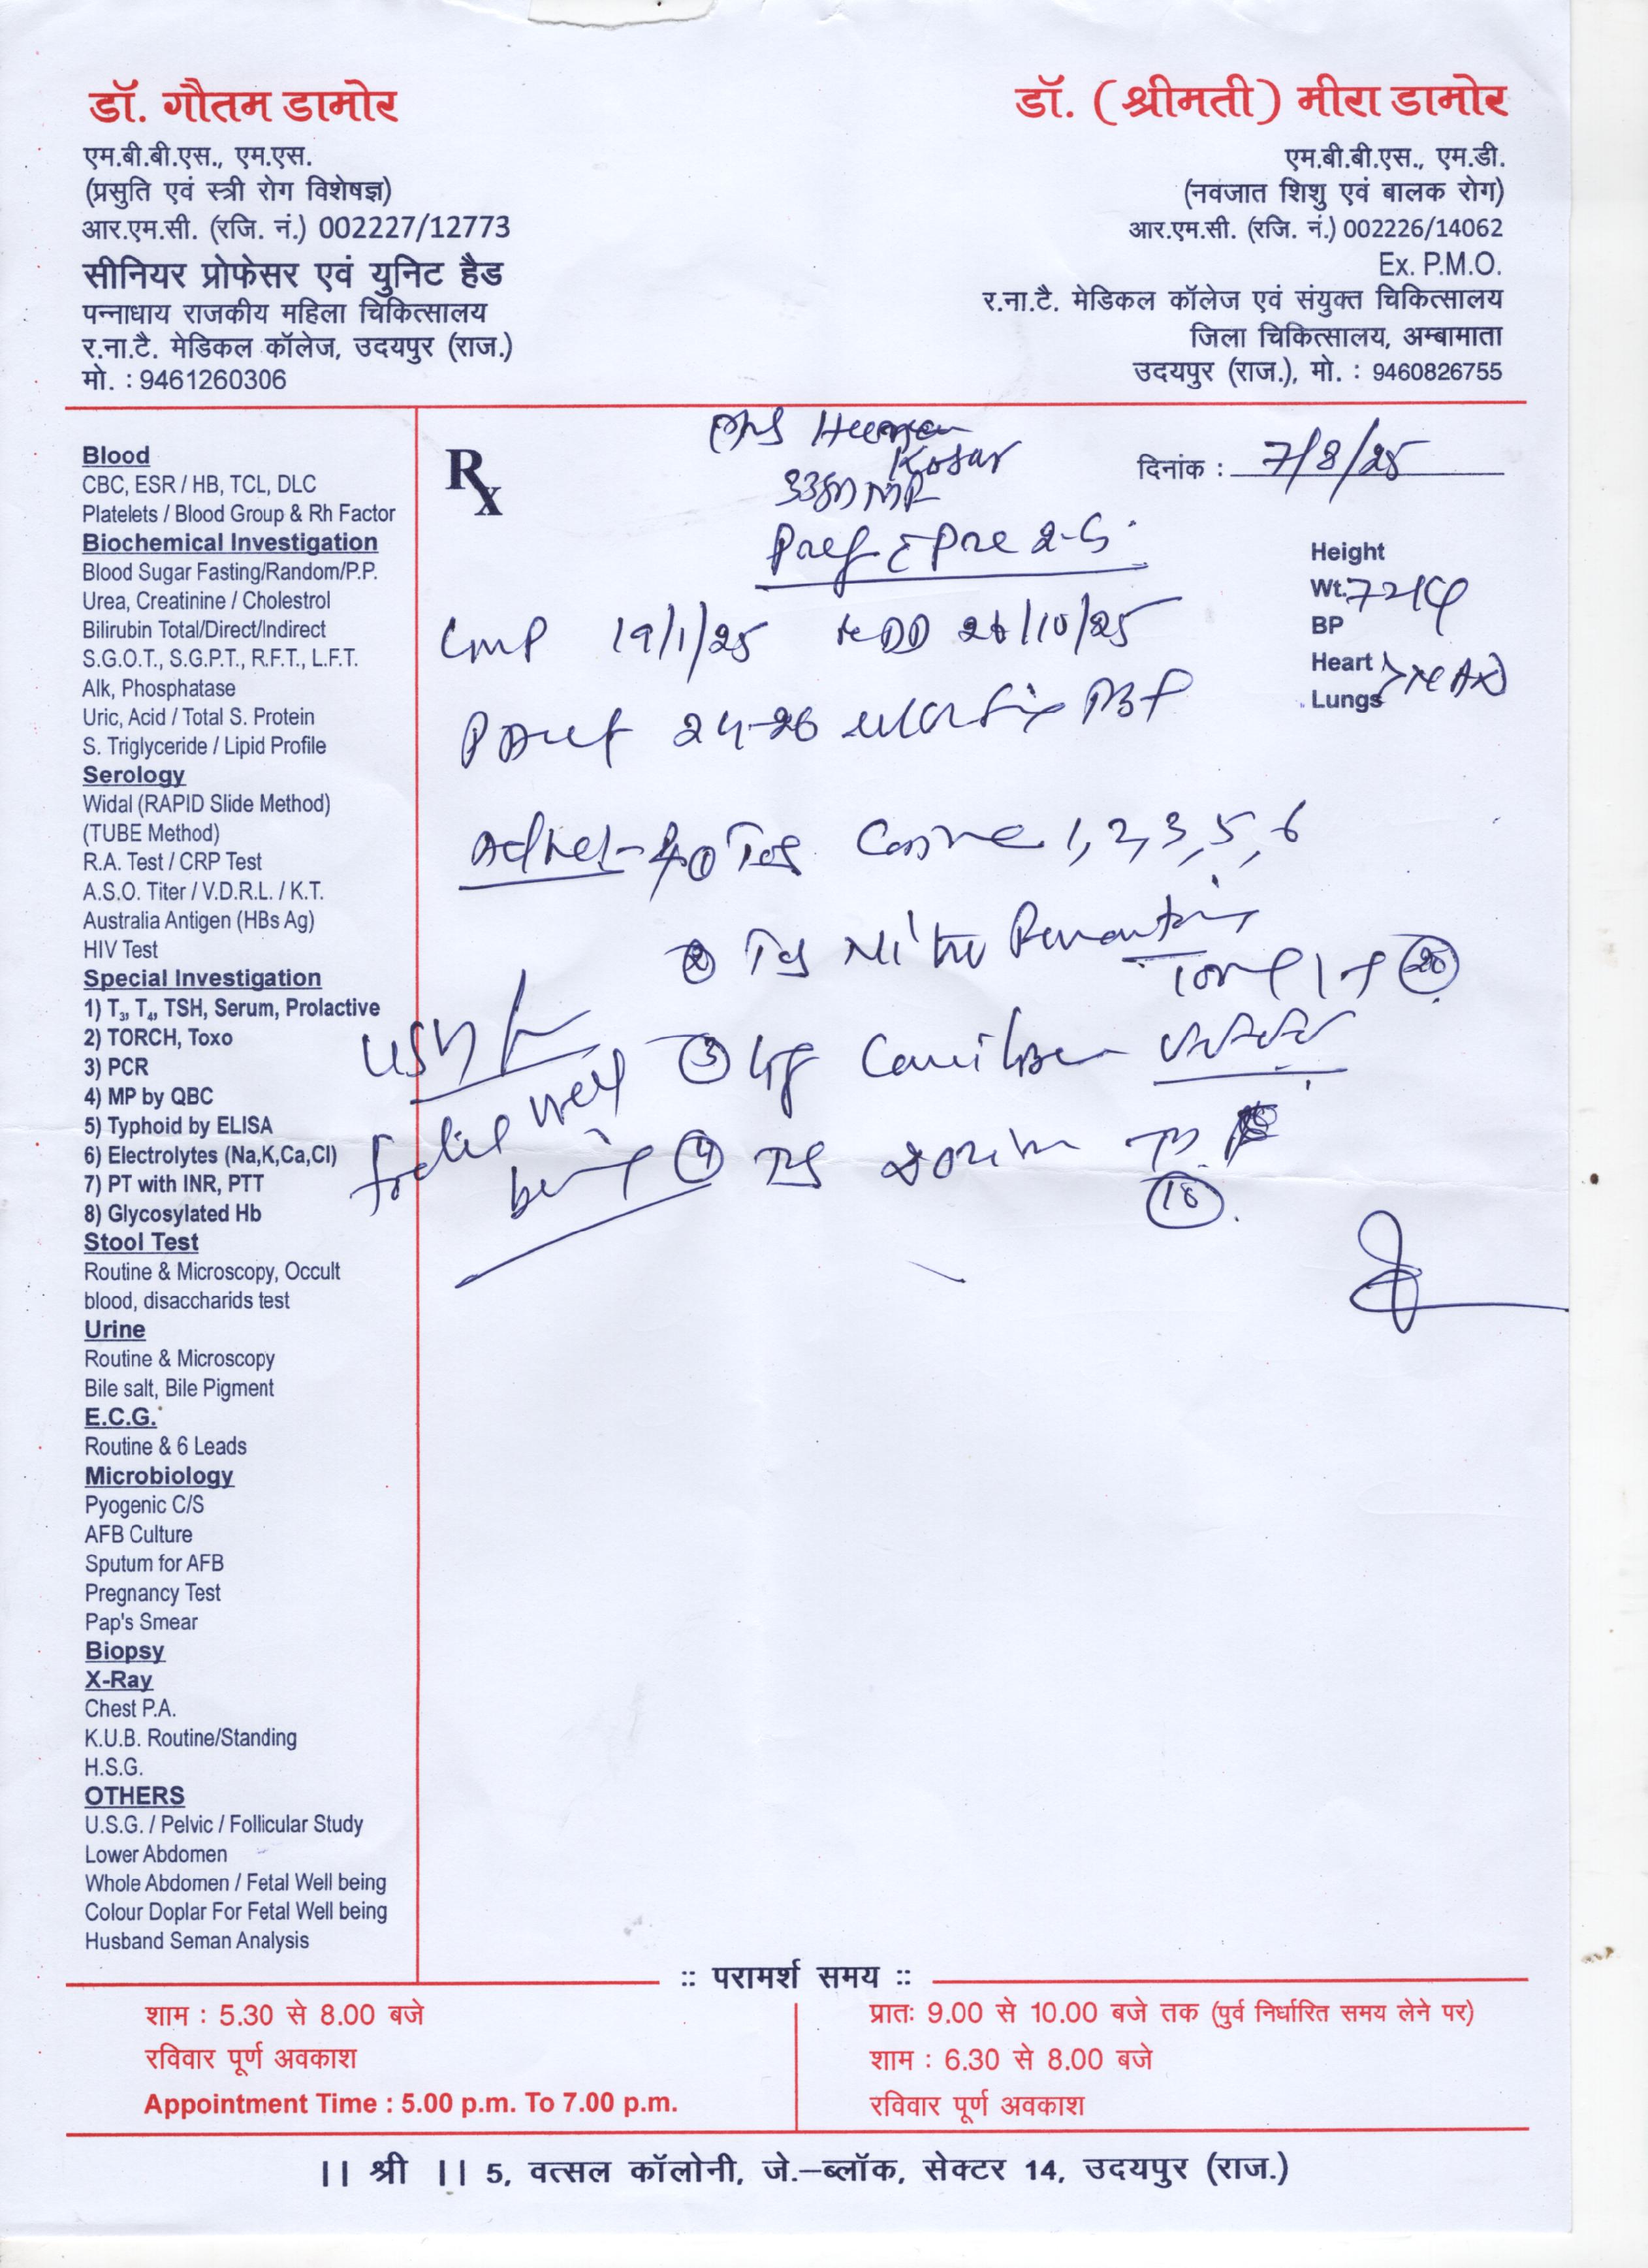 डॉ. गौतम डामोर
एम.बी.बी.एस., एम.एस.
(प्रसुति एवं स्त्री रोग विशेषज्ञ)
आर.एम.सी. (रजि. नं.) 002227/12773
सीनियर प्रोफेसर एवं युनिट हैड
पन्नाधाय राजकीय महिला चिकित्सालय
र.ना.टै. मेडिकल कॉलेज, उदयपुर (राज.)
मो. : 9461260306
डॉ. (श्रीमती) मीरा डामोर
एम.बी.बी.एस., एम.डी.
(नवजात शिशु एवं बालक रोग)
आर.एम.सी. (रजि. नं.) 002226/14062
Ex. P.M.O.
र.ना.टै. मेडिकल कॉलेज एवं संयुक्त चिकित्सालय
जिला चिकित्सालय, अम्बामाता
उदयपुर (राज.), मो. : 9460826755
Blood
CBC, ESR / HB, TCL, DLC
Platelets / Blood Group & Rh Factor
Biochemical Investigation
Blood Sugar Fasting/Random/P.P.
Urea, Creatinine / Cholestrol
Bilirubin Total/Direct/Indirect
S.G.O.T., S.G.P.T., R.F.T., L.F.T.
Alk, Phosphatase
Uric, Acid / Total S. Protein
S. Triglyceride / Lipid Profile
Serology
Widal (RAPID Slide Method)
(TUBE Method)
R.A. Test / CRP Test
A.S.O. Titer / V.D.R.L. / K.T.
Australia Antigen (HBs Ag)
HIV Test
Special Investigation
1) T₃, T₄, TSH, Serum, Prolactive
2) TORCH, Toxo
3) PCR
4) MP by QBC
5) Typhoid by ELISA
6) Electrolytes (Na,K,Ca,Cl)
7) PT with INR, PTT
8) Glycosylated Hb
Stool Test
Routine & Microscopy, Occult
blood, disaccharids test
Urine
Routine & Microscopy
Bile salt, Bile Pigment
E.C.G.
Routine & 6 Leads
Microbiology
Pyogenic C/S
AFB Culture
Sputum for AFB
Pregnancy Test
Pap's Smear
Biopsy
X-Ray
Chest P.A.
K.U.B. Routine/Standing
H.S.G.
OTHERS
U.S.G. / Pelvic / Follicular Study
Lower Abdomen
Whole Abdomen / Fetal Well being
Colour Doplar For Fetal Well being
Husband Seman Analysis
Rx
Kosar
दिनांक : 7/8/25
Height
Wt. 72
BP
Heart
Lungs
LMP 19/1/25 EDD 26/10/25
24-26
1, 2, 3, 5, 6
② Nitro
20
USG
③
Fetal well
being
④
18
:: परामर्श समय ::
शाम : 5.30 से 8.00 बजे
रविवार पूर्ण अवकाश
Appointment Time : 5.00 p.m. To 7.00 p.m.
प्रातः 9.00 से 10.00 बजे तक (पुर्व निर्धारित समय लेने पर)
शाम : 6.30 से 8.00 बजे
रविवार पूर्ण अवकाश
|| श्री || 5, वत्सल कॉलोनी, जे.–ब्लॉक, सेक्टर 14, उदयपुर (राज.)